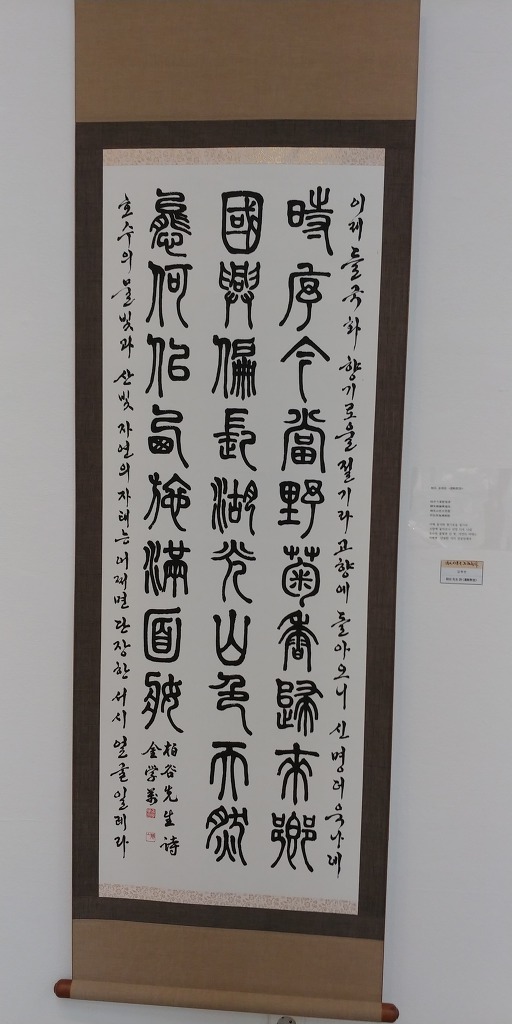 이제 들국화 향기로울 절기라 고향에 돌아오니 신명 더욱 나네
時序今當野菊香歸來鄉
國興偏長湖光山色天然
態何似西施滿面妝
柏谷先生詩
金学萬
호수의 물빛과 산빛 자연의 자태는 어쩌면 단장한 서시 얼굴일레라